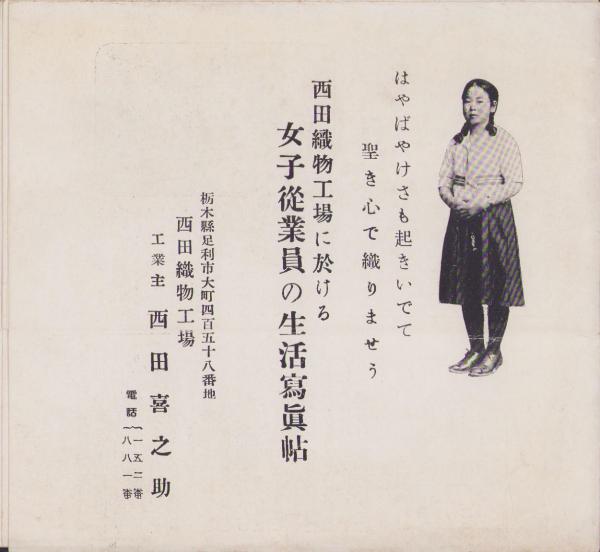 はやばやけさも起きいでて
聖き心で織りませう
西田織物工場に於ける
女子從業員の生活寫眞帖
栃木縣足利市大町四百五十八番地
西田織物工場
工業主 西田喜之助
電話 一五二番
八八一番